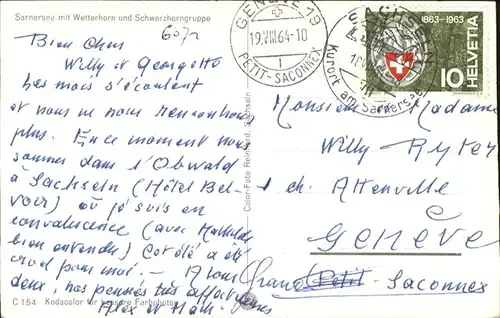 Sarnersee mit Wetterhorn und Schwarzhorngruppe
6072
Bien chers
Willy et Georgette
Les mois s'écoulent
et nous ne nous rencontrons
plus. En ce moment nous
sommes dans l'Obwald
à Sachseln (Hôtel Bel-
voir) où je suis en
convalescence (avec Mathilde
bien entendu) Cet été a été
cruel pour moi. — A vous
deux, nos pensées très affectueuses
Alex et Math.
C 154 Kodacolor für bessere Farbphotos
Color-Foto Reinhard, Sachseln
GENÈVE 19
19.VIII.64-10
1
PETIT-SACONNEX
SACHSELN
Kurort am Sarnersee
1863-1963
HELVETIA
10
Monsieur Madame
Willy Ryter
1 ch. Attenville
GENÈVE
Grand Petit-Saconnex